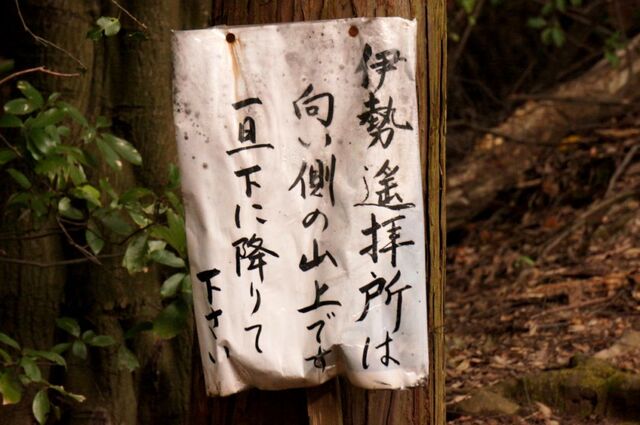 伊勢遥拝所は
向い側の山上です
一旦下に降りて
下さい